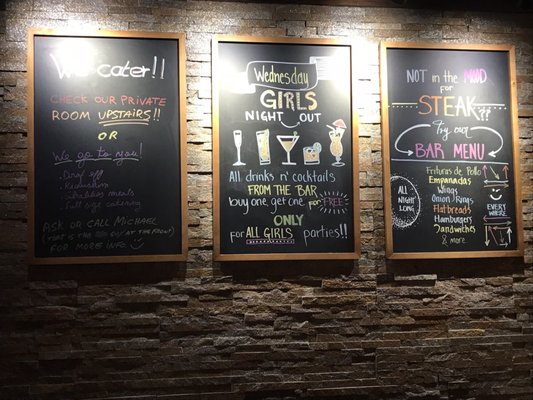 We cater!!
CHECK OUR PRIVATE
ROOM UPSTAIRS!!
OR
We go to you!
Drop off
full size catering
ASK OR CALL MICHAEL
(THIS IS THE GUY AT THE FRONT)
FOR MORE INFO.
Wednesday
GIRLS
NIGHT OUT
All drinks n' cocktails
FROM THE BAR
buy one, get one for FREE
ONLY
for ALL GIRLS parties!!
NOT in the MOOD
for
STEAK??
Try our
BAR MENU
ALL
NIGHT
LONG
Frituras de Pollo
Empanadas
Wings
Onion Rings
Flatbreads
Hamburgers
Sandwiches
& more
EVERY
WHERE